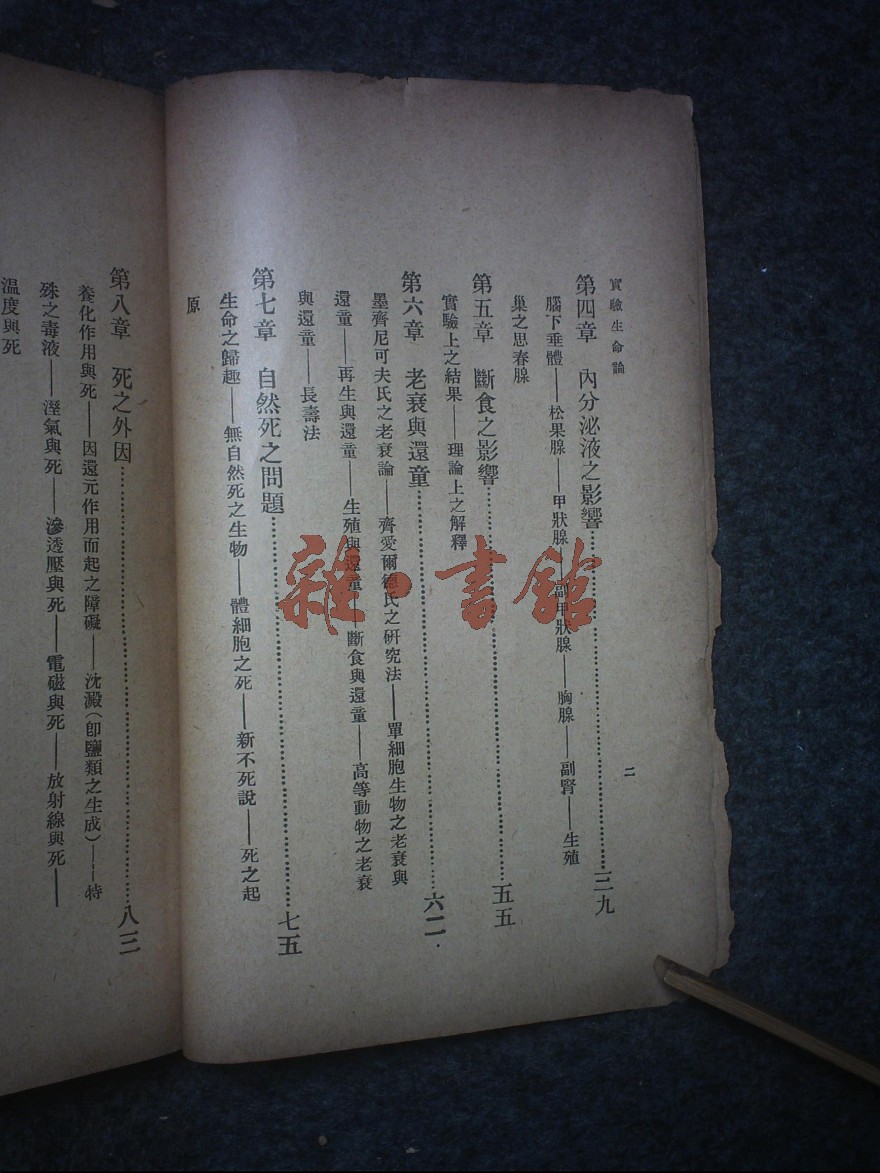 實驗生命論
二
第四章 內分泌液之影響……三九
腦下垂體——松果腺——甲狀腺——副甲狀腺——胸腺——副腎——生殖
巢之思春腺
第五章 斷食之影響……五五
實驗上之結果——理論上之解釋
第六章 老衰與還童……六二
墨齊尼可夫氏之老衰論——齊愛爾德氏之研究法——單細胞生物之老衰與
還童——再生與還童——生殖與還童——斷食與還童——高等動物之老衰
與還童——長壽法
第七章 自然死之問題……七五
生命之歸趣——無自然死之生物——體細胞之死——新不死說——死之起
原
第八章 死之外因……八三
養化作用與死——因還元作用而起之障礙——沈澱(卽鹽類之生成)——特
殊之毒液——溼氣與死——滲透壓與死——電磁與死——放射線與死——
溫度與死
雜·書館